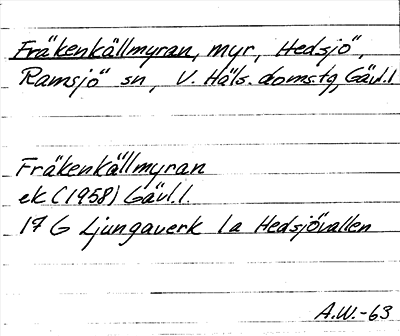 Fräkenkällmyran, myr, Hedsjö,
Ramsjö sn, V. Häls. domstg, Gävl.l
Fräkenkällmyran
ek (1958) Gävl.l.
17 G Ljungaverk 1a Hedsjövallen
A.W.-63